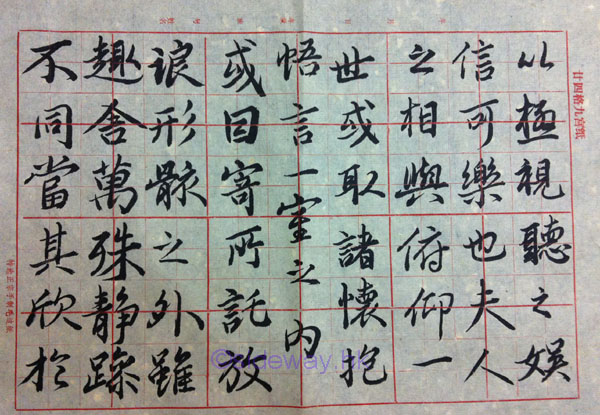 廿四格九宮紙
以極視聽之娛
信可樂也夫人
之相與俯仰一
世或取諸懷抱
悟言一室之內
或因寄所託放
浪形骸之外雖
趣舍萬殊静躁
不同當其欣於